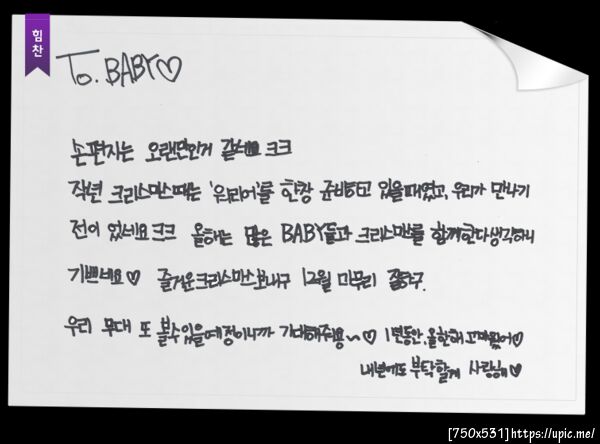 힘찬
To. BABY♡
손편지는 오랜만인거 같네요 ㅋㅋ
작년 크리스마스때는 '워리어'를 한창 준비하고 있을때였고, 우리가 만나기
전이 었네요ㅋㅋ 올해는 많은 BABY들과 크리스마스를 함께한다 생각하니
기쁘네요♡ 즐거운크리스마스보내구 12월 마무리 잘하구.
우리 무대 또 볼수있을예정이니까 기대해줘용~♡ 1년동안, 올한해 고마웠어♡
내년에도 부탁할게 사랑해♡
[750x531]https://upic.me/